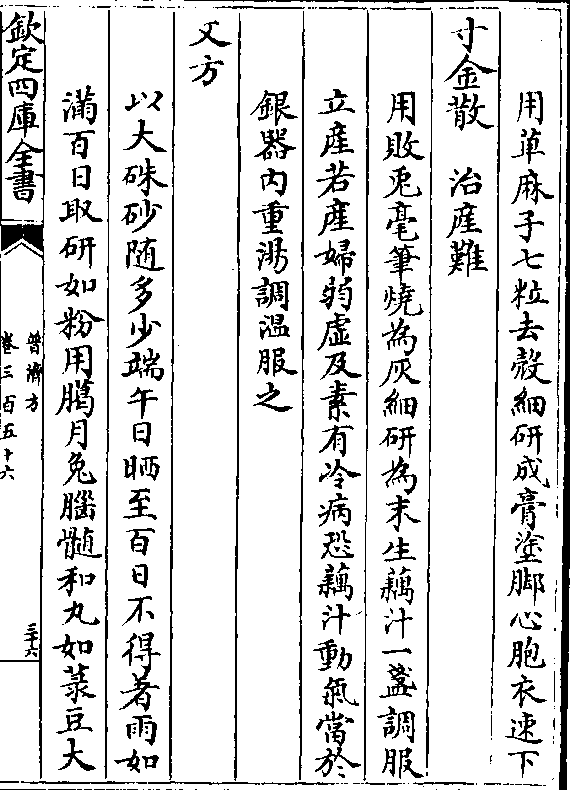 用萆麻子七粒去殻細研成膏塗脚心胞衣速下
寸金散　治産難
用敗兎毫筆燒為灰細研為末生藕汁一盞調服
立産若産婦弱虚及素有冷病恐藕汁動氣當於
銀器内重湯調温服之
又方
以大硃砂随多少端午日晒至百日不得着雨如
滿百日取研如粉用臈月兔腦髄和丸如菉豆大
欽定四庫全書
普濟方
卷三百五十六
三十六